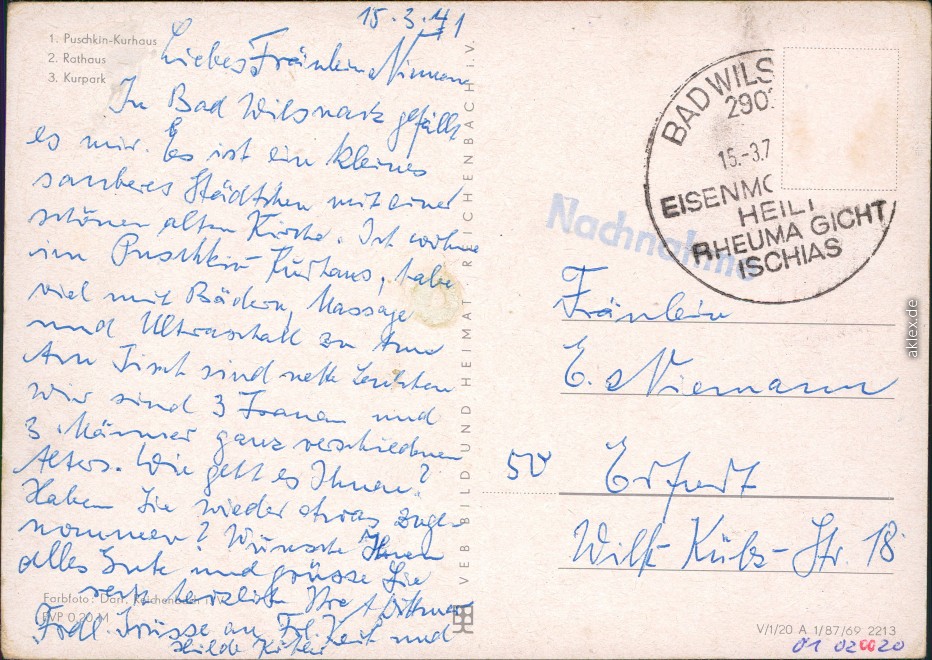 15.3.71
1. Puschkin-Kurhaus
2. Rathaus
3. Kurpark
Liebes Fräulein Niemann
In Bad Wilsnack gefällt
es mir. Es ist ein kleines
sauberes Städtchen mit einer
schönen alten Kirche. Ich wohne
im Puschkin-Kurhaus, habe
viel mit Bädern, Massage
und Ultraschall zu tun.
Am Tisch sind nette Leutchen
wir sind 3 Frauen und
3 Männer ganz verschiednen
Alters. Wie geht es Ihnen?
Haben Sie wieder etwas zuge-
nommen? Wünsche Ihnen
alles Gute und grüsse Sie
recht herzlich Ihre
Frdl. Grüsse an Frl. und
Hilde
Farbfoto: Darr, Reichenbach i. V.
EVP 0,20 M
VEB BILD UND HEIMAT REICHENBACH I. V.
BAD WILS
290
15.-3.7
EISENMO
HEILT
RHEUMA GICHT
ISCHIAS
Nachnahme
Fräulein
E. Niemann
50 Erfurt
Wilh. Külz-Str. 18
V/1/20 A 1/87/69 2213
01 020020
aklex.de